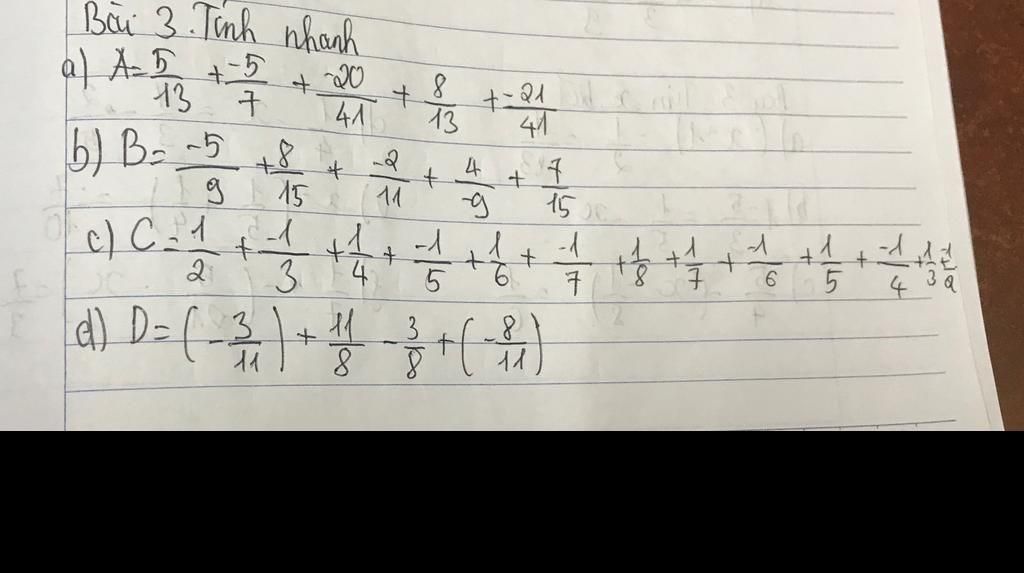 Bài 3. Tính nhanh
a) A = 5/13 + -5/7 + -20/41 + 8/13 + -21/41
b) B = -5/9 + 8/15 + -2/11 + 4/-9 + 7/15
c) C = 1/2 + -1/3 + 1/4 + -1/5 + 1/6 + -1/7 + 1/8 + 1/7 + -1/6 + 1/5 + -1/4 + 1/3 + -1/2
d) D = (-3/11) + 11/8 - 3/8 + (-8/11)